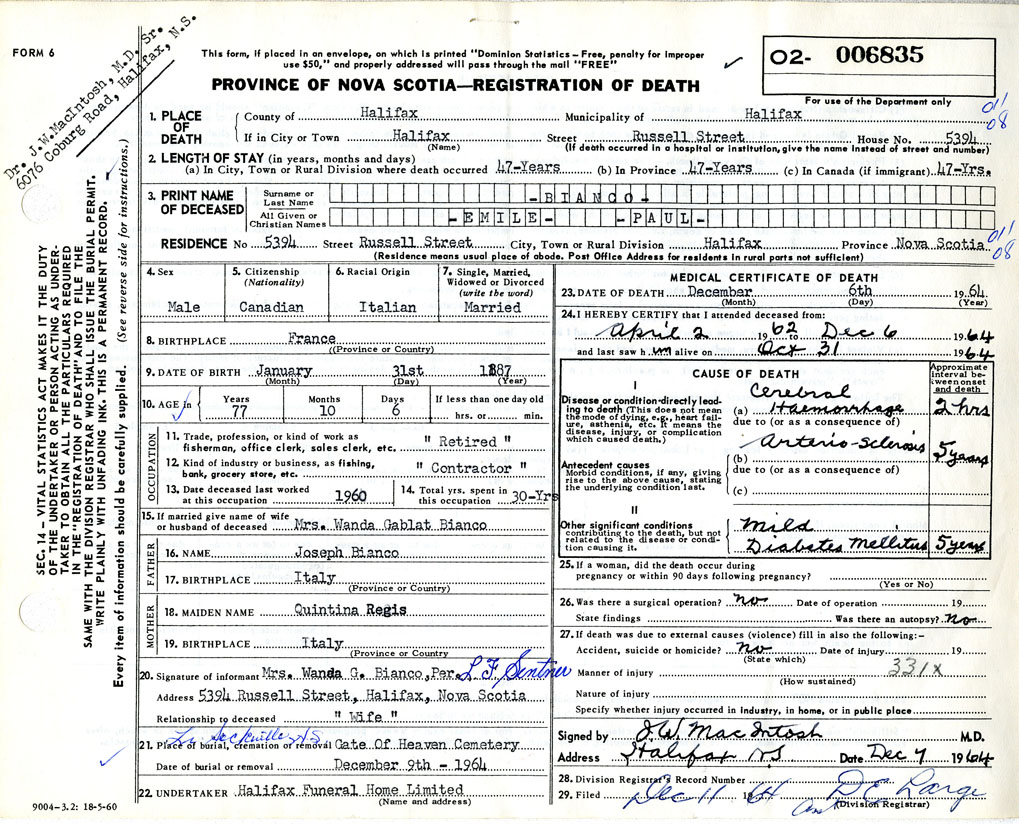 FORM 6
Dr. J.W.MacIntosh, M.D. Sr.
6076 Coburg Road, Halifax, N.S.
This form, if placed in an envelope, on which is printed "Dominion Statistics – Free, penalty for improper
use $50," and properly addressed will pass through the mail "FREE"
PROVINCE OF NOVA SCOTIA—REGISTRATION OF DEATH
02- 006835
For use of the Department only
SEC. 14 – VITAL STATISTICS ACT MAKES IT THE DUTY
OF THE UNDERTAKER OR PERSON ACTING AS UNDER-
TAKER TO OBTAIN ALL THE PARTICULARS REQUIRED
IN THE "REGISTRATION OF DEATH" AND TO FILE THE
SAME WITH THE DIVISION REGISTRAR WHO SHALL ISSUE THE BURIAL PERMIT.
WRITE PLAINLY WITH UNFADING INK. THIS IS A PERMANENT RECORD.
Every item of information should be carefully supplied. (See reverse side for instructions.)
1. PLACE OF DEATH
County of Halifax Municipality of Halifax
011
08
If in City or Town Halifax Street Russell Street House No. 5394
(Name) (If death occurred in a hospital or institution, give the name instead of street and number)
2. LENGTH OF STAY (in years, months and days)
(a) In City, Town or Rural Division where death occurred 47-Years (b) In Province 47-Years (c) In Canada (if immigrant) 47-Yrs.
3. PRINT NAME OF DECEASED
Surname or Last Name -BIANCO-
All Given or Christian Names -EMILE- -PAUL-
RESIDENCE No 5394 Street Russell Street City, Town or Rural Division Halifax Province Nova Scotia
011
08
(Residence means usual place of abode. Post Office Address for residents in rural parts not sufficient)
4. Sex
Male
5. Citizenship
(Nationality)
Canadian
6. Racial Origin
Italian
7. Single, Married,
Widowed or Divorced
(write the word)
Married
8. BIRTHPLACE France
(Province or Country)
9. DATE OF BIRTH January 31st 1887
(Month) (Day) (Year)
10. AGE in Years Months Days If less than one day old
77 10 6 hrs. or min.
OCCUPATION
11. Trade, profession, or kind of work as
fisherman, office clerk, sales clerk, etc. " Retired "
12. Kind of industry or business, as fishing,
bank, grocery store, etc. " Contractor "
13. Date deceased last worked
at this occupation 1960
14. Total yrs. spent in
this occupation 30-Yrs
15. If married give name of wife
or husband of deceased Mrs. Wanda Gablat Bianco
FATHER
16. NAME Joseph Bianco
17. BIRTHPLACE Italy
(Province or Country)
MOTHER
18. MAIDEN NAME Quintina Regis
19. BIRTHPLACE Italy
(Province or Country
20. Signature of informant Mrs. Wanda G. Bianco,Per. L F Sentner
Address 5394 Russell Street, Halifax, Nova Scotia
Relationship to deceased " Wife "
L. Sackville NS
21. Place of burial, cremation or removal Gate Of Heaven Cemetery
Date of burial or removal December 9th - 1964
22. UNDERTAKER Halifax Funeral Home Limited
(Name and address)
9004–3.2: 18-5-60
MEDICAL CERTIFICATE OF DEATH
23. DATE OF DEATH December 6th 1964
(Month) (Day) (Year)
24. I HEREBY CERTIFY that I attended deceased from:
April 2 1962 to Dec 6 1964
and last saw him alive on Oct 31 1964
CAUSE OF DEATH
Approximate
interval be-
tween onset
and death
I
Disease or condition directly lead-
ing to death (This does not mean
the mode of dying, e.g., heart fail-
ure, asthenia, etc. It means the
disease, injury, or complication
which caused death.)
Cerebral
(a) Haemorrhage 2 hrs
due to (or as a consequence of)
Antecedent causes
Morbid conditions, if any, giving
rise to the above cause, stating
the underlying condition last.
(b) Arterio-Sclerosis 5 years
due to (or as a consequence of)
(c)
II
Other significant conditions
contributing to the death, but not
related to the disease or condi-
tion causing it.
Mild
Diabetes Mellitus 5 years
25. If a woman, did the death occur during
pregnancy or within 90 days following pregnancy?
(Yes or No)
26. Was there a surgical operation? no Date of operation 19
State findings Was there an autopsy? No
27. If death was due to external causes (violence) fill in also the following:–
Accident, suicide or homicide? No Date of injury 19
(State which)
Manner of injury 331X
(How sustained)
Nature of injury
Specify whether injury occurred in industry, in home, or in public place
Signed by J.W. MacIntosh M.D.
Address Halifax NS Date Dec 7 1964
28. Division Registrar's Record Number
29. Filed Dec 11 1964 D E Large
(Division Registrar)